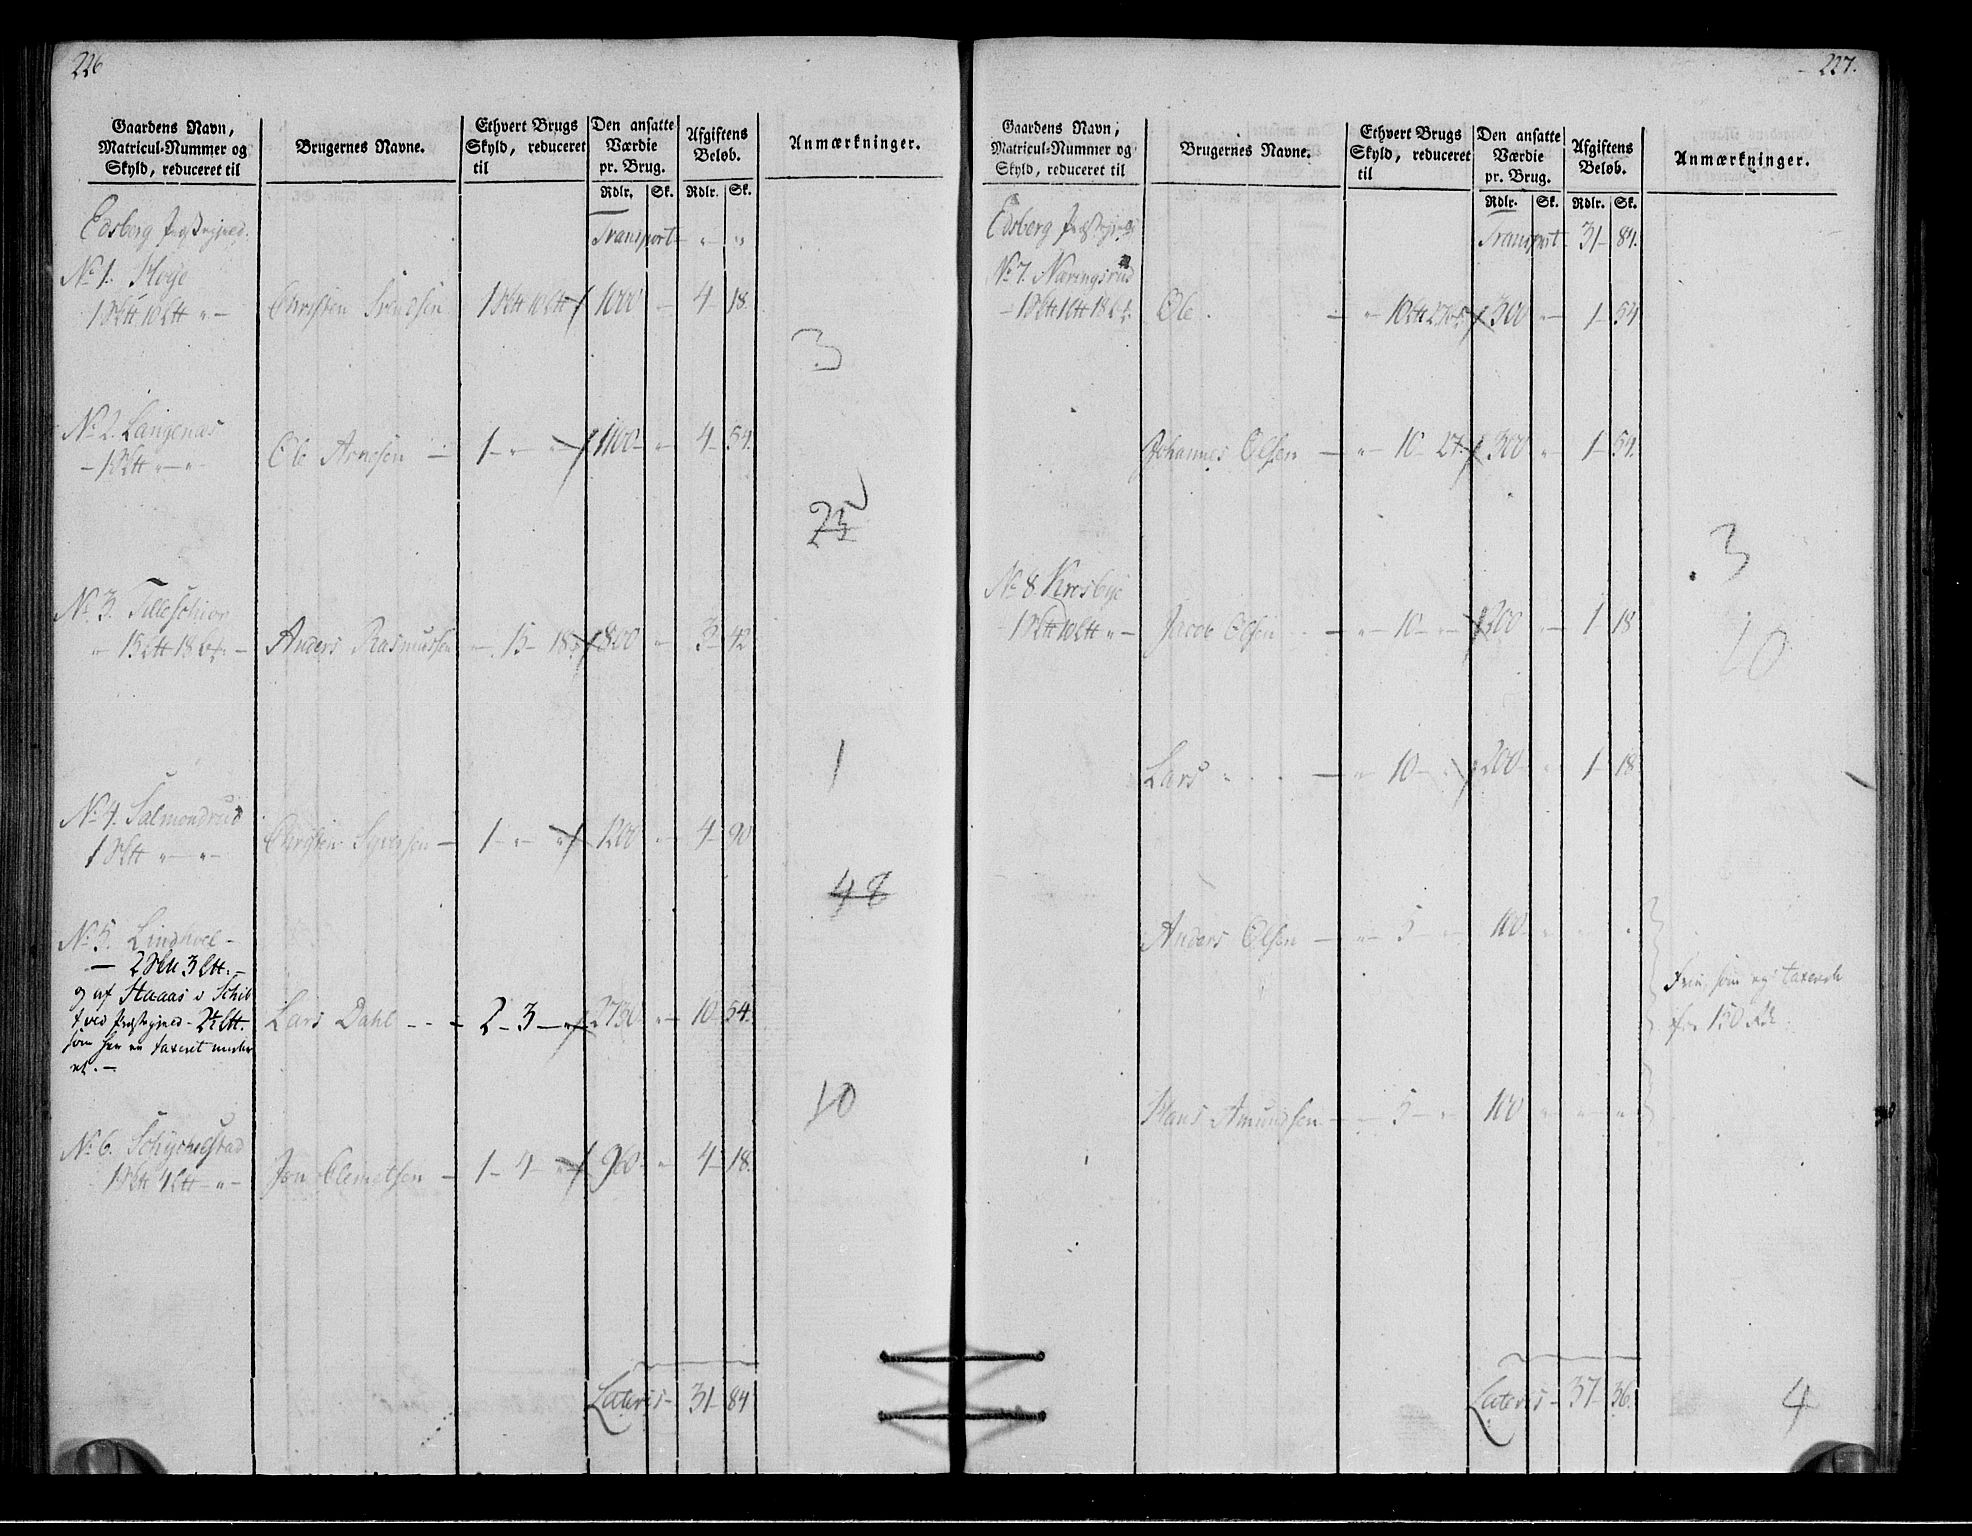 226
Gaardens Navn,
Matricul-Nummer og
Skyld, reduceret til
Brugernes Navne.
Ethvert Brugs
Skyld, reduceret
til
Den ansatte
Værdie
pr. Brug.
Rdlr. Sk.
Afgiftens
Beløb.
Rdlr. Sk.
Anmærkninger.
Edsberg Præstegield.
Transport - " "
No 1. Hoye
1 10 " - Christen Svendsen 1 10 1000 - 4 - 18.
3
No 2. Langenæs
- 1 " - " - Ole Arnesen - 1 - " - 1100 - " - 4 - 54.
25
No 3.
" 15 18 - Anders Rasmussen " - 15 - 18 800 " 3 - 42
1
No 4. Salmondrud
1 " - " - Christen Syversen - 1 - " - 1200 " - 4 - 90
48
No 5. Lindhoel -
- 2 3 . -
og af Haaas i Schib
tved Præstegield - 2½ . Lars Dahl - - - 2 - 3 - " 2730 " - 10 - 54.
som her er taxeret under
et. -
10
No 6.
1 4 - " - Jon Clemetsen - 1 - 4 - 960 - " 4 - 18.
Lateris - 31 - 84
227.
Gaardens Navn,
Matricul-Nummer og
Skyld, reduceret til
Brugernes Navne.
Ethvert Brugs
Skyld, reduceret
til
Den ansatte
Værdie
pr. Brug.
Rdlr. Sk.
Afgiftens
Beløb.
Rdlr. Sk.
Anmærkninger.
Edsberg Præstegield
Transport - 31 - 84.
No 7. Næringsrud
- 1 1 18 Ole - " - 10 300 " - 1 - 54
Johannes Olsen - " - 10 - 27. 300 " - 1 - 54.
3
No 8. Kresbye
- 1 10 " - Jacob Olsen - - " - 10 - " - 200 " - 1 18
10
Lars - " 10 - 200 - 1 - 18
Anders Olsen - " - 5 - " 100 " "
Frie, som ej taxerede
for 150 Rd.
Hans Amundsen - - 5 - " 100 " - " "
Lateris - 37 - 36.
4